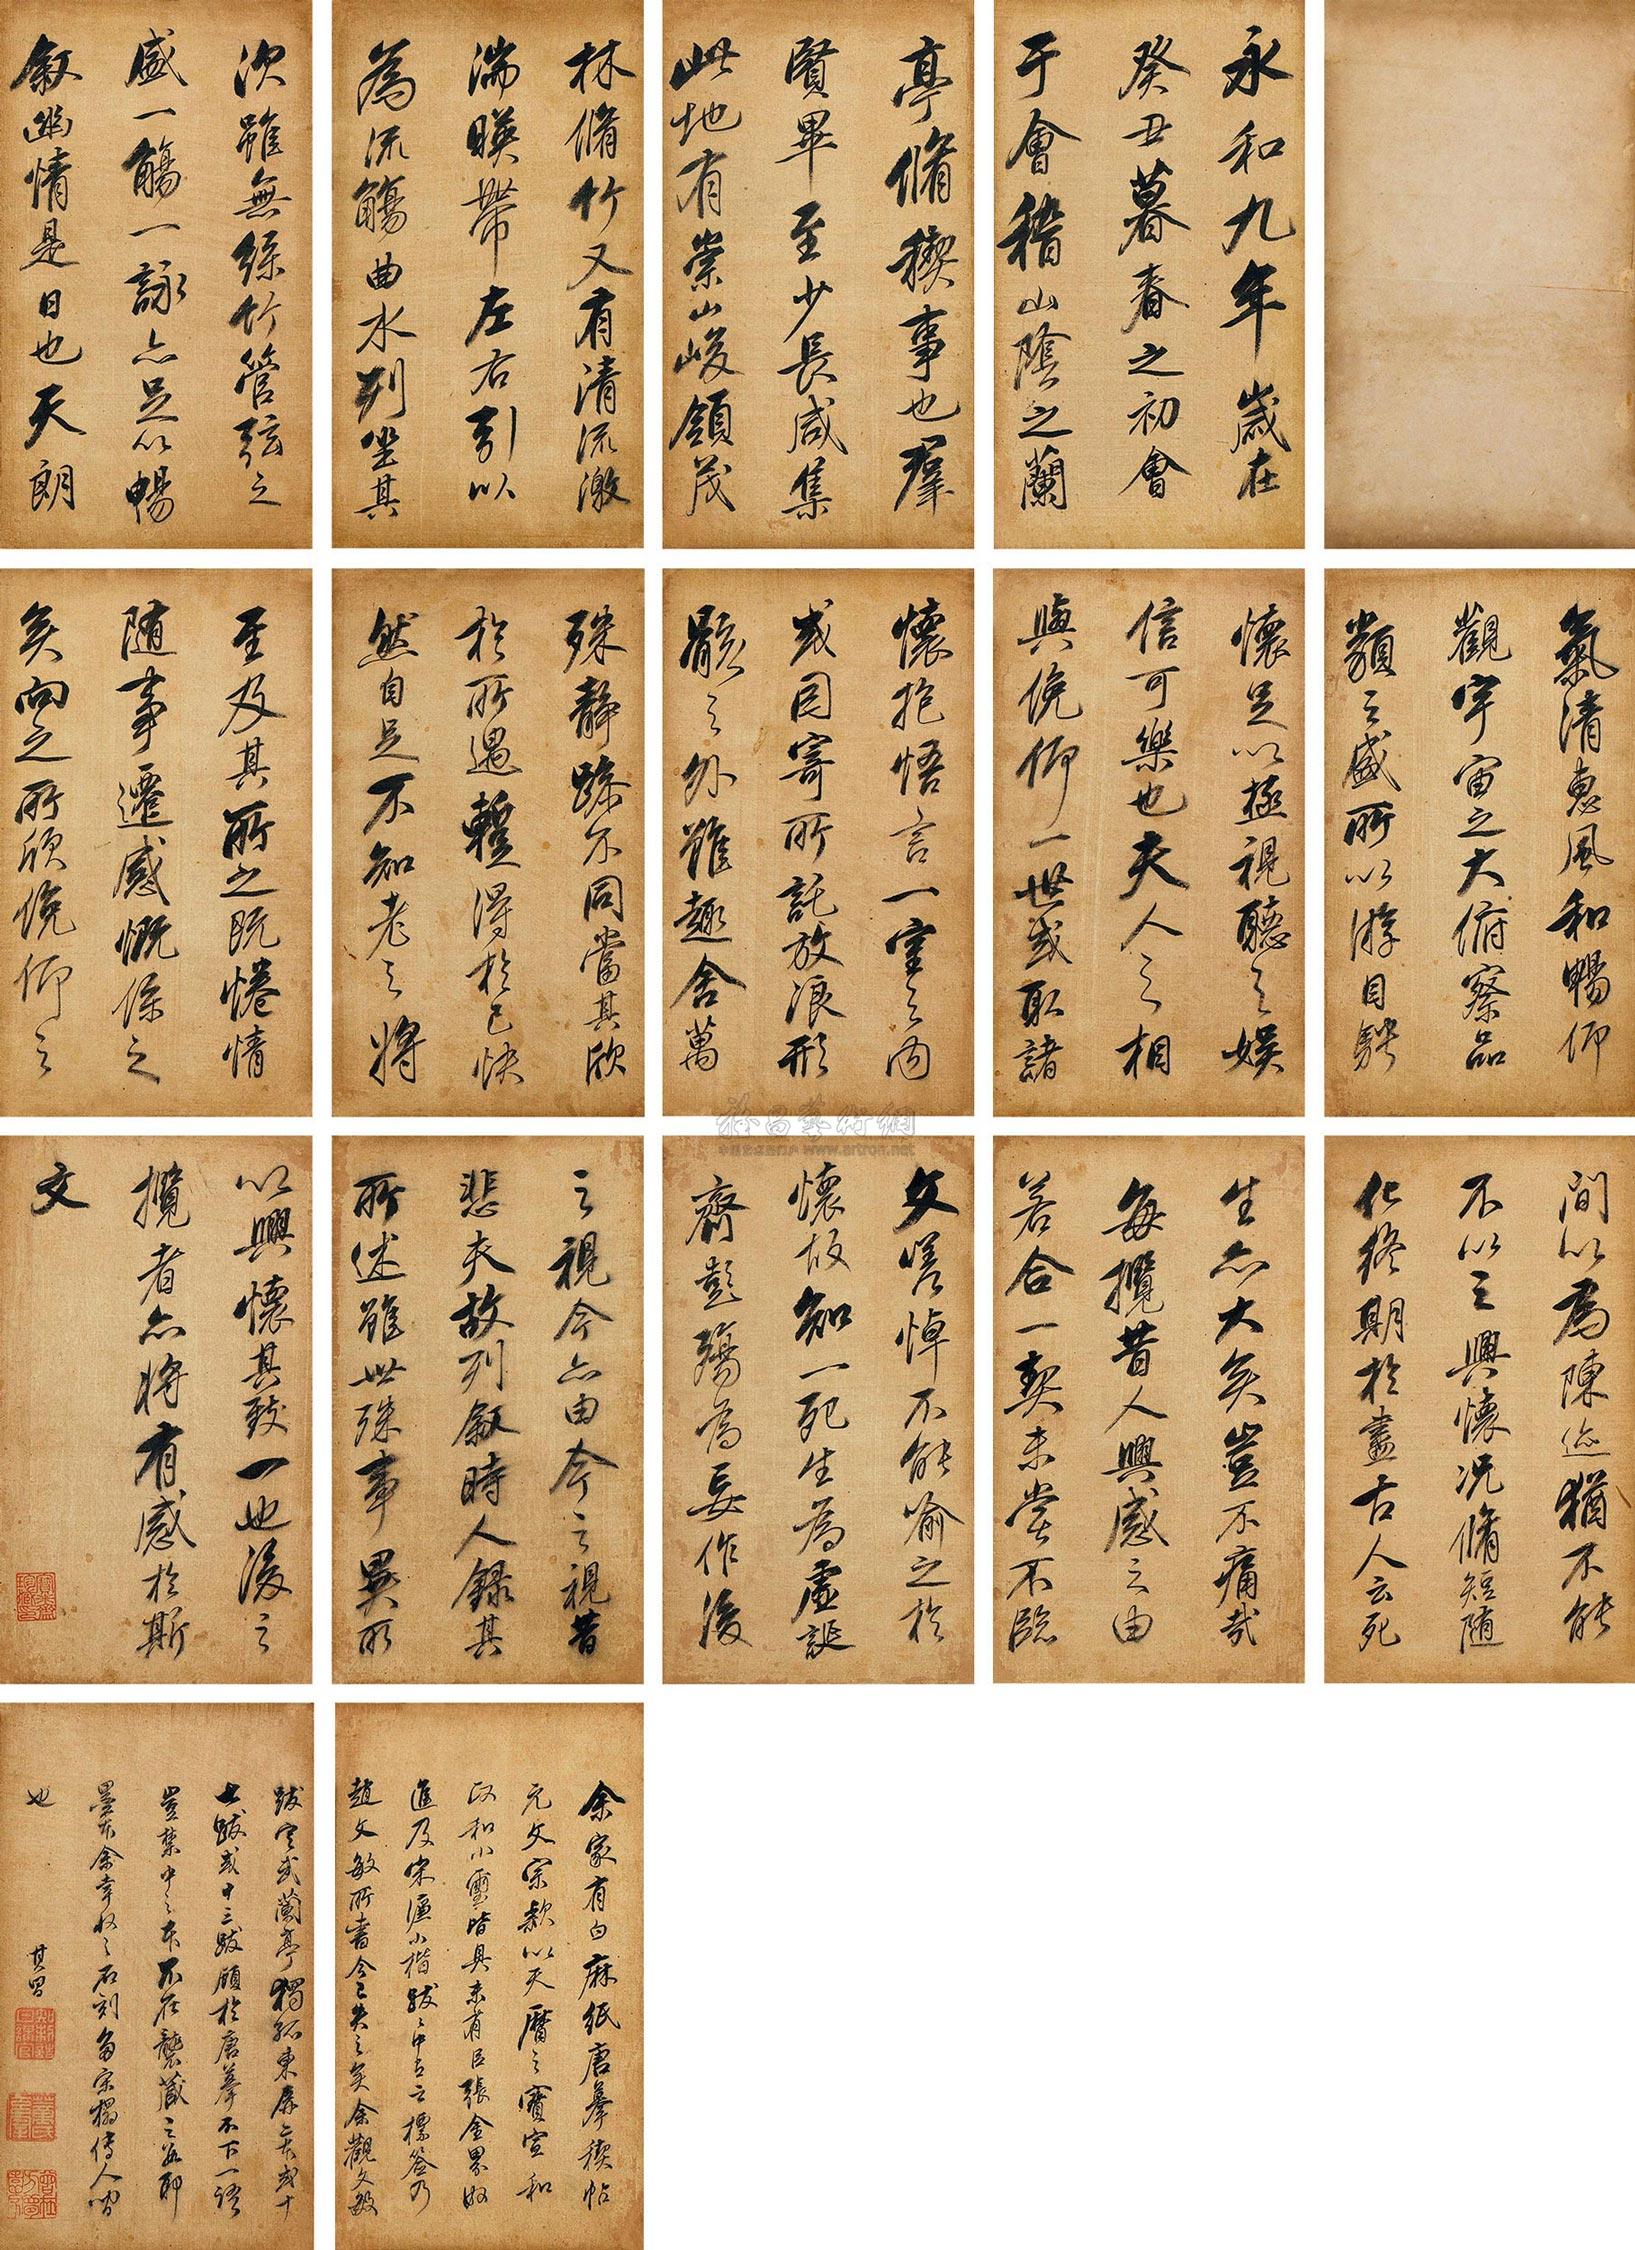 永和九年歲在
癸丑暮春之初會
于會稽山陰之蘭
亭脩稧事也羣
賢畢至少長咸集
此地有崇山峻領茂
林脩竹又有清流激
湍暎帶左右引以
為流觴曲水列坐其
次雖無絲竹管弦之
盛一觴一詠亦足以暢
敘幽情是日也天朗
氣清惠風和暢仰
觀宇宙之大俯察品
類之盛所以游目騁
懷足以極視聽之娛
信可樂也夫人之相
與俛仰一世或取諸
懷抱悟言一室之內
或因寄所託放浪形
骸之外雖趣舍萬
殊靜躁不同當其欣
於所遇暫得於己快
然自足不知老之將
至及其所之既惓情
隨事遷感慨係之
矣向之所欣俛仰之
間以為陳迹猶不能
不以之興懷況脩短隨
化終期於盡古人云死
生亦大矣豈不痛哉
每攬昔人興感之由
若合一契未嘗不臨
文嗟悼不能喻之於
懷故知一死生為虛誕
齊彭殤為妄作後
之視今亦由今之視昔
悲夫故列敘時人錄其
所述雖世殊事異所
以興懷其致一也後之
攬者亦將有感於斯
文
余家有白麻紙唐摹稧帖
元文宗款以天曆之寶宣和
政和小璽皆具末有臣張金界奴
進及宋濂小楷跋跋中有云標簽乃
趙文敏所書今已失之矣余觀文敏
跋定武蘭亭獨孤東屏二本或十
七跋或十三跋顧於唐摹不下一語
豈禁中之本不在襲藏之數耶
墨本余幸收之石刻為宋搨傳人間
也
其昌
雅昌藝術網
www.artron.net